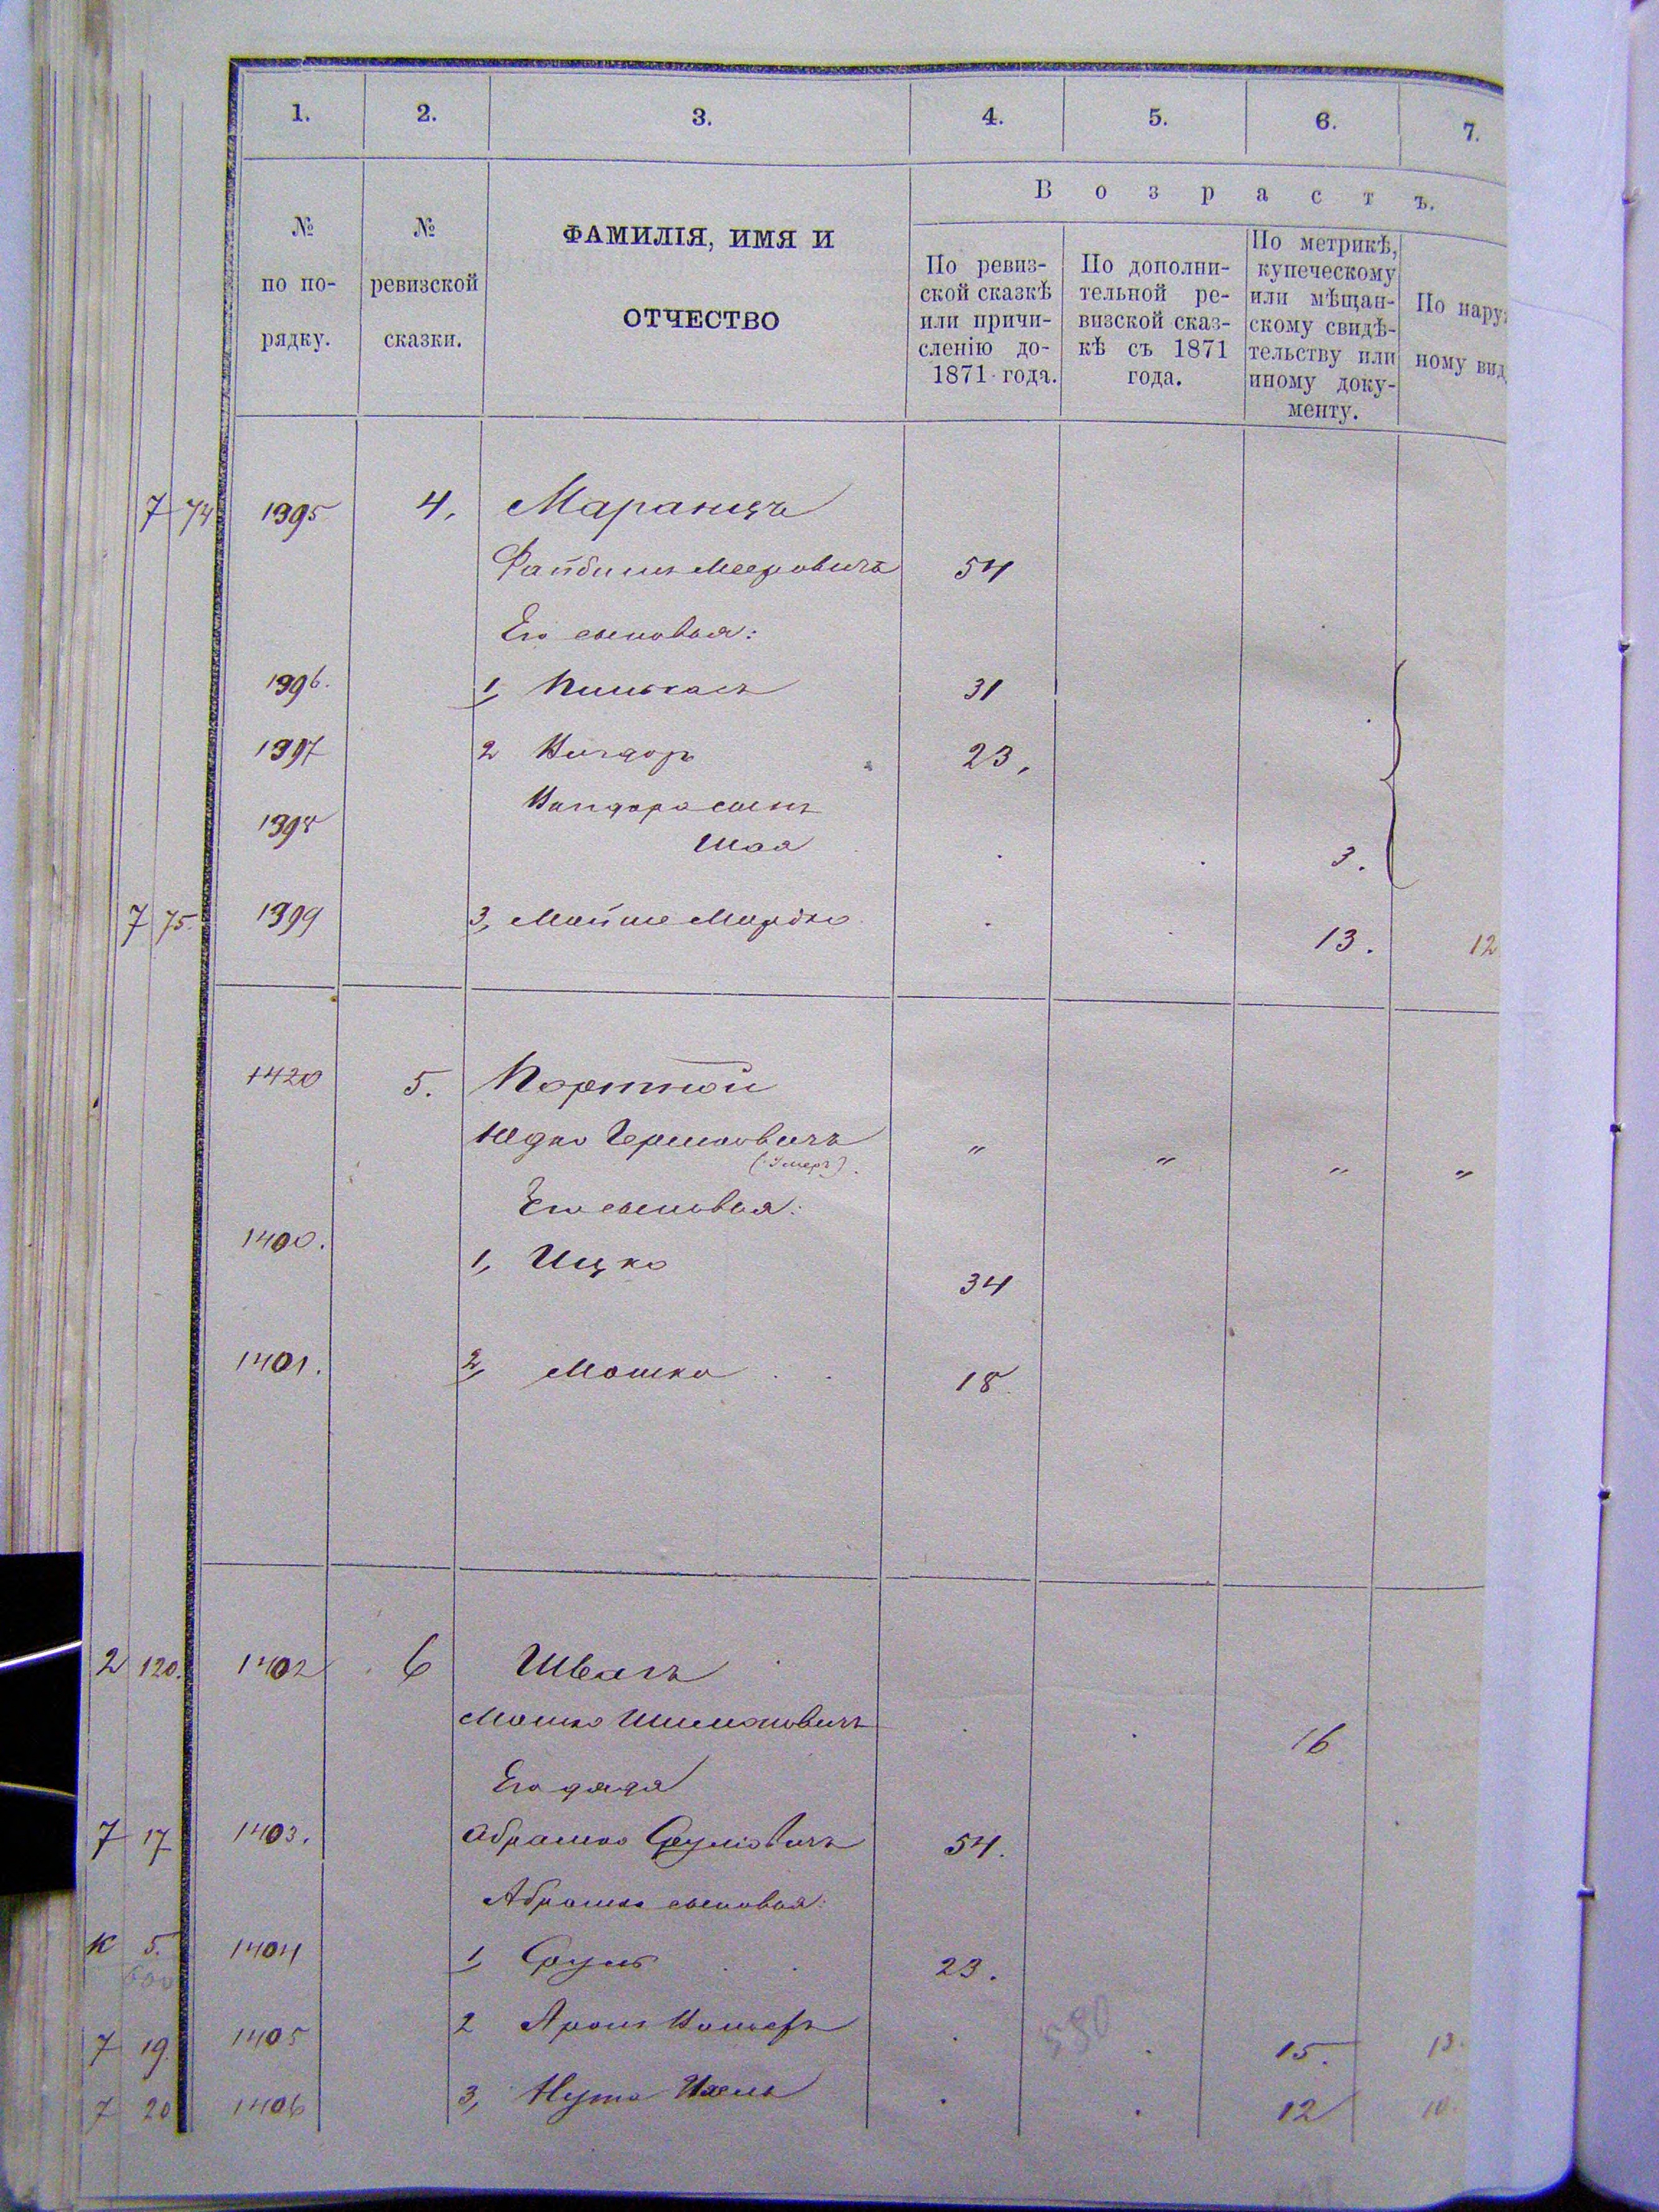 1. 2. 3. 4. 5. 6. 7.
В о з р а с т ъ.
№ по по-рядку.
№ ревизской сказки.
ФАМИЛІЯ, ИМЯ И
ОТЧЕСТВО
По ревиз-
ской сказкѣ
или причи-
сленію до-
1871 года.
По дополни-
тельной ре-
визской сказ-
кѣ съ 1871
года.
По метрикѣ,
купеческому
или мѣщан-
скому свидѣ-
тельству или
иному доку-
менту.
По нару
ному вид
7 74 1395 4, Маранцъ
Файбишъ Мееровичъ 54
Его сыновья:
1396. 1, Пинькасъ 31
1397 2 23,
1398 сынъ
Шая 3.
7 75. 1399 3, Мойше Мордко 13. 12
1420 5. Портной
Юдко Гершковичъ " " " "
(:Умеръ)
Его сыновья:
1400. 1, Ицко 34
1401. 2, Мошко 18
2 120. 1402 6 Швагъ
Мошко Шимоновичъ 16
Его дядя
7 17 1403. Абрашко Сруловичъ 54.
Абрашко сыновья:
К 5. 1404 1, Сруль 23.
600
580
7 19. 1405 2 Аронъ 15. 13.
7 20 1406 3, Нута Ихель 12 10.